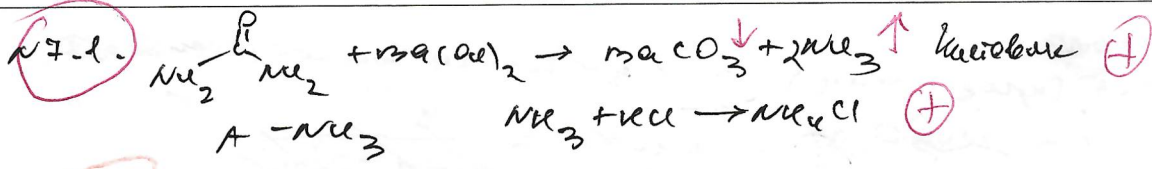 N7-1. NH2 C O NH2 + Ba(OH)2 → BaCO3↓ + 2NH3↑ (+)
A - NH3 NH3 + HCl → NH4Cl (+)